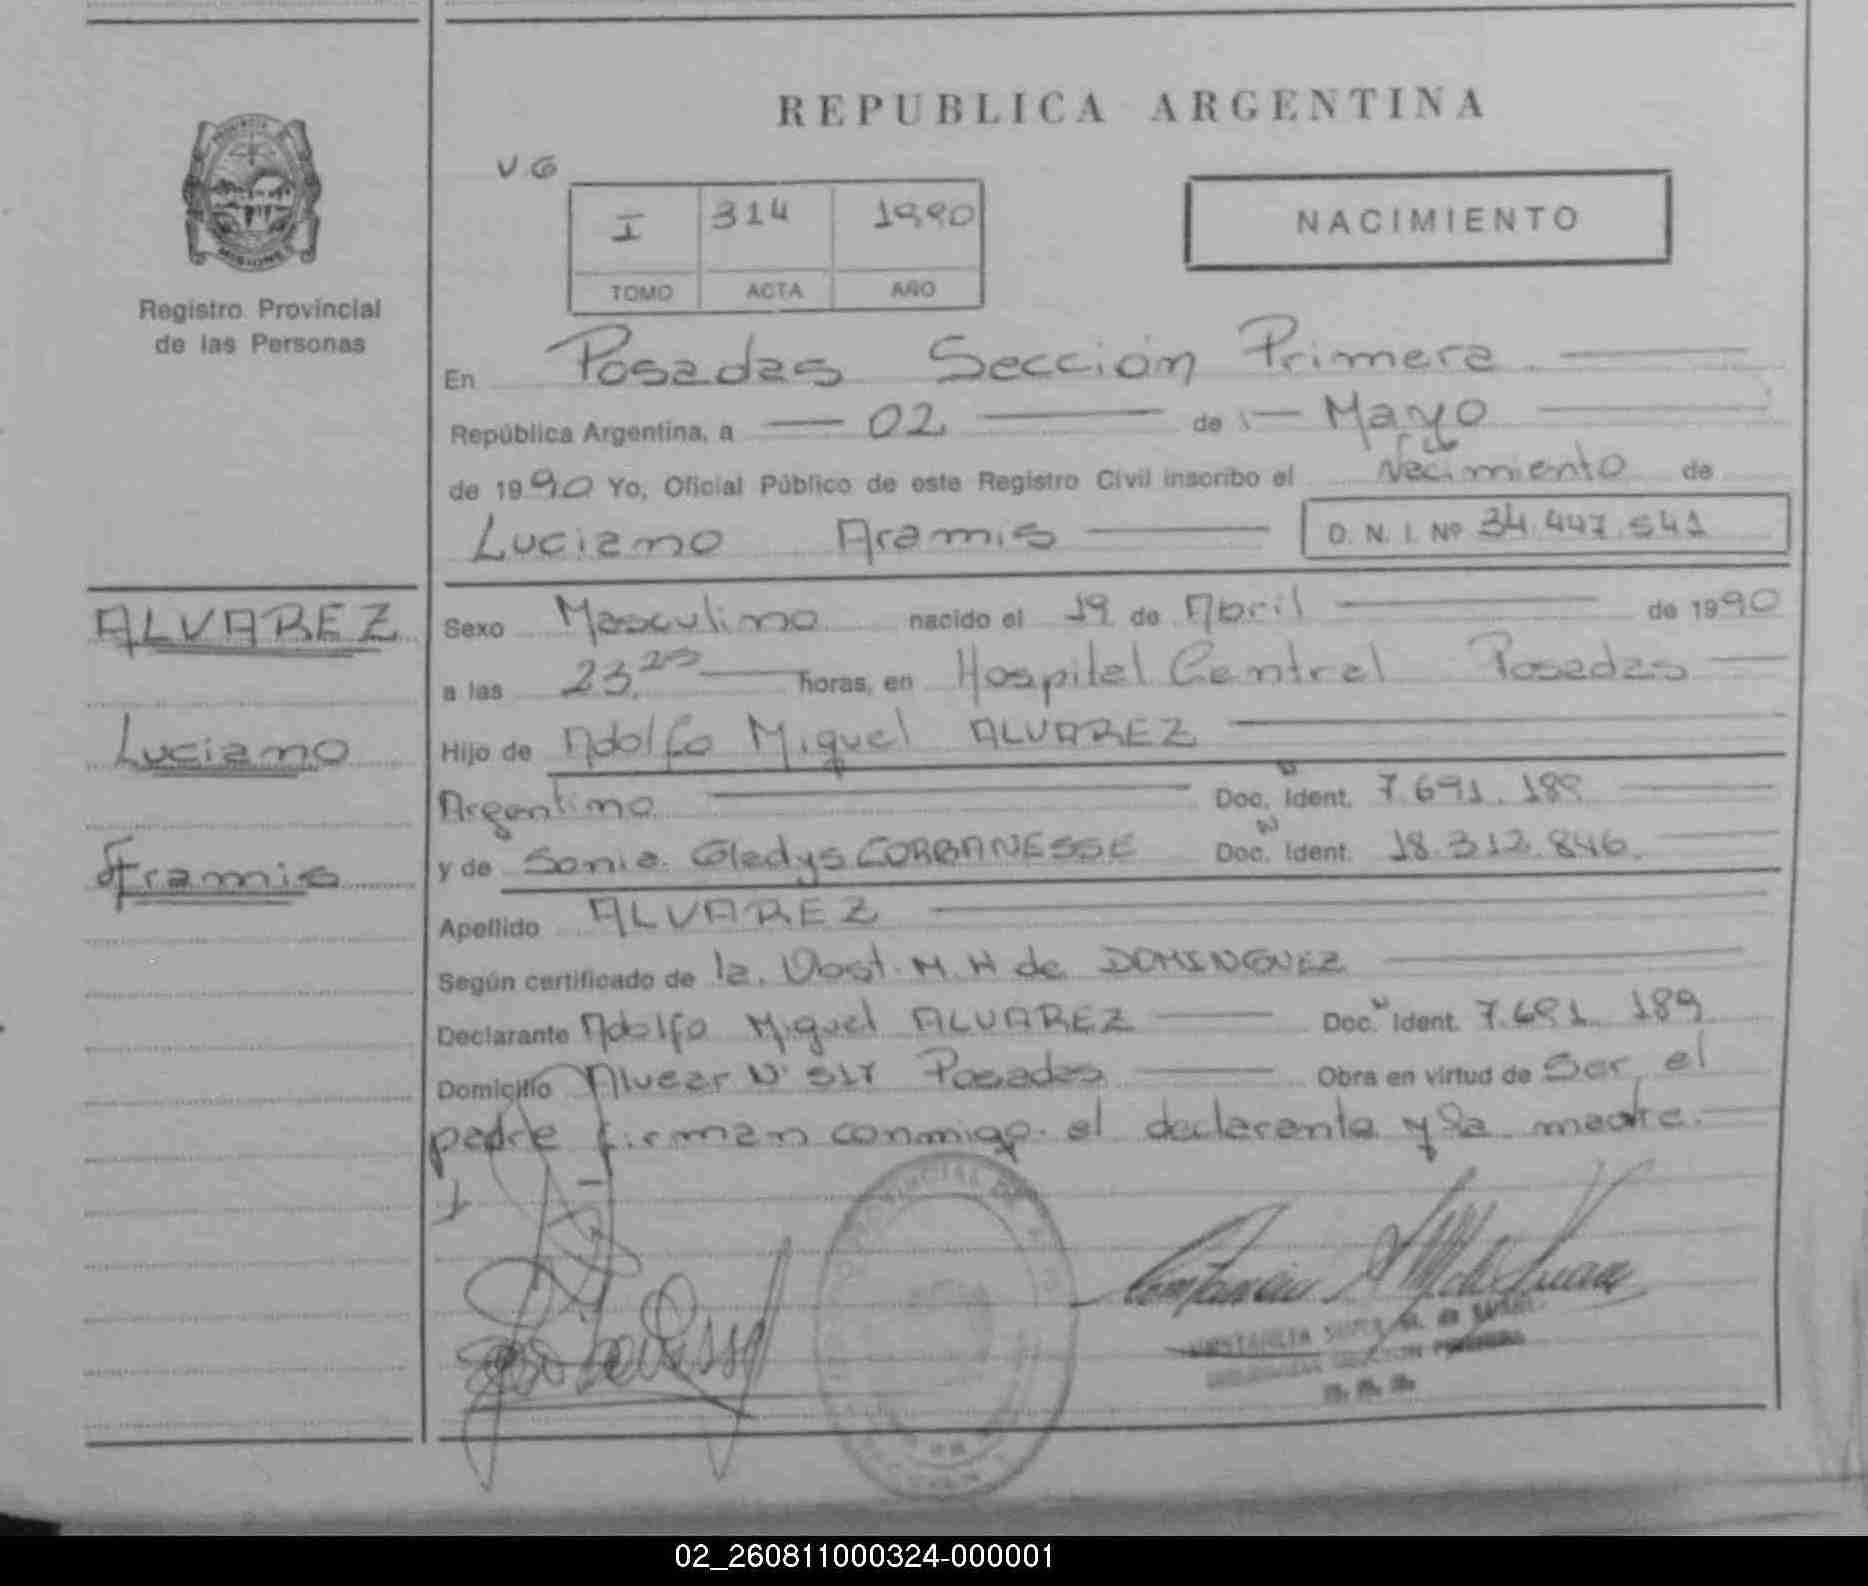 REPUBLICA ARGENTINA
V.G
I 314 1990
TOMO ACTA AÑO
NACIMIENTO
Registro Provincial
de las Personas
En Posadas Sección Primera
República Argentina, a 02 de Mayo
de 1990 Yo, Oficial Público de este Registro Civil inscribo el Nacimiento de
Luciano Aramis
D. N. I. Nº 34.447.541
ALVAREZ
Luciano
Aramis
Sexo Masculino nacido el 19 de Abril de 1990
a las 23,25 horas, en Hospital Central Posadas
Hijo de Adolfo Miguel ALVAREZ
Argentino Doc. Ident. 7.691.189
y de Sonia Gladys CORBANESSE Doc. Ident. 18.312.846
Apellido ALVAREZ
Según certificado de la Obst. M. H de DOMINGUEZ
Declarante Adolfo Miguel ALVAREZ Doc. Ident. 7.691.189
Domicilio Alvear Nº Posadas Obra en virtud de Ser el
padre firman conmigo el declarante y la madre.
02_260811000324-000001